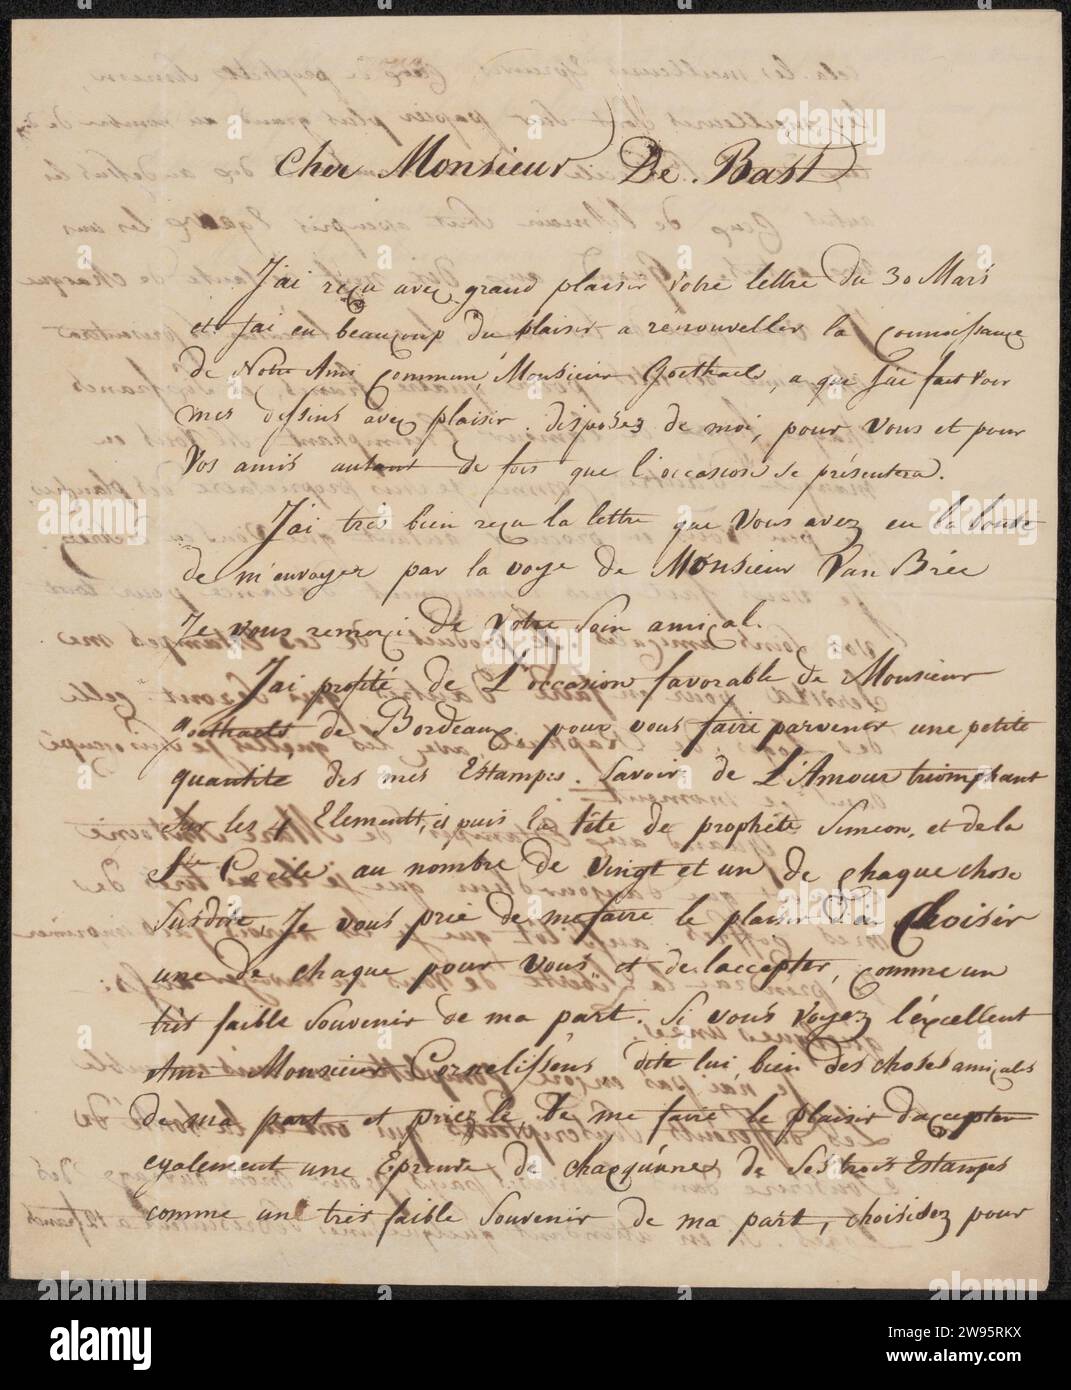 Cher Monsieur De Bast
J'ai reçu aveç grand plaisir votre lettre du 30 Mars
et J'ai eu beaucoup du plaisir a renouveller la connoissance
de Notre Ami Commun, Monsieur Goethaels, a que J'ai fait voir
mes dessins aveç plaisir. disposez de moi, pour Vous et pour
Vos amis autant de fois que l'occasion se présentera.
J'ai très bien reçu la lettre que Vous avez eu la bonté
de m'envoyer par la voye de Monsieur Van Brée
Je vous remerçi de Votre Soin amiçal.
J'ai profité de L'occasion favorable de Monsieur
Goethaels de Bordeaux pour vous faire parvenir une petite
quantité des mes Estampes. Savoir de L'Amour triomphant
Sur les 4 Elements, et puis la tête de prophéte Simeon, et de la
Ste Cecile au nombre de vingt et un de chaque chose
Susdite, Je vous prie de me faire le plaisir d'en Choisir
une de chaque pour Vous et de l'accepter, comme un
très faible Souvenir de ma part. Si vous voyez l'éxcellent
Ami Monsieur Cornelissens dite lui bien des choses amiçals
de ma part et priez le de me faire le plaisir d'accepter
egalement une Epreuve de chacqúnne de Ses trois Estampes
comme une très faible Souvenir de ma part, choisisez pour
alamy
alamy
Image ID: 2W95RKX
www.alamy.com